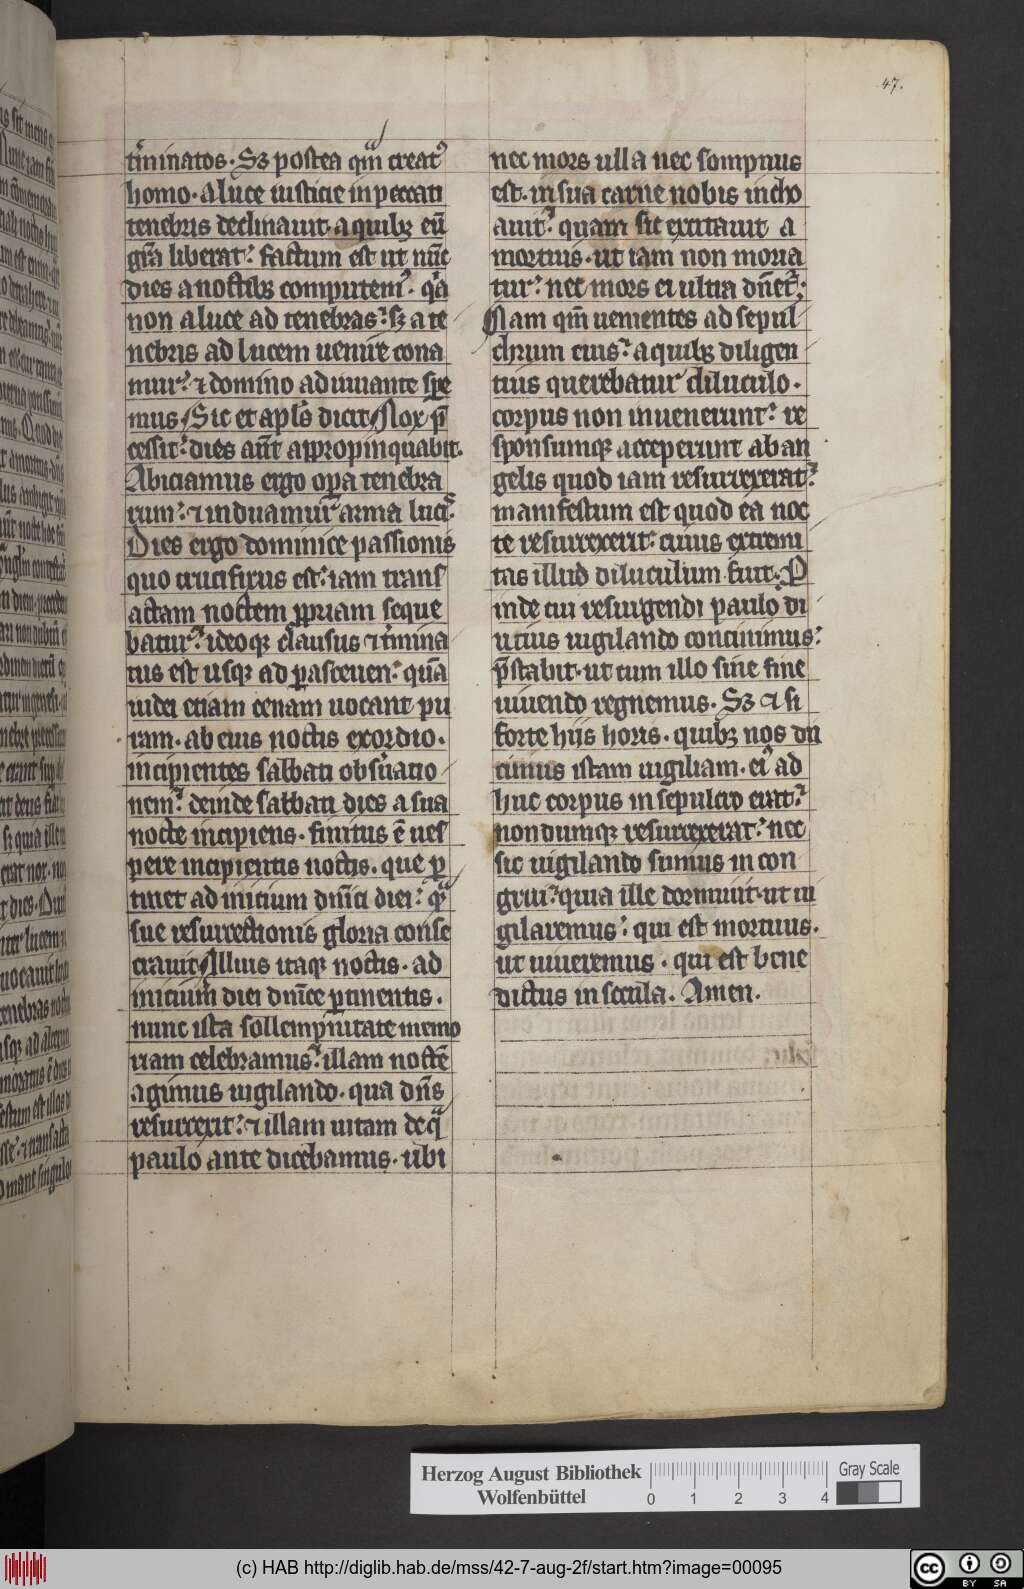 47.
t̄minatos. Sꝫ postea qm̄ creatꝰ
homo. a luce iusticie in peccati
tenebris declinauit. a quibꝫ eū
gr̄a liberat᷒. factum est ut nūc
dies a noctibꝫ computemꝰ. qͣ
non a luce ad tenebras᷒. sꝫ a te
nebris ad lucem uenire cona
mur᷒. ⁊ domino adiuuante spe
mus Sic et apls̄ dicit Nox p̄
cessit᷒. dies aūt appropinquabit.
Abiciamus ergo oꝑa tenebra
rum᷒. ⁊ induamur arma luci᷒.
Dies ergo dominice passionis
quo crucifixus est᷒. iam trans
actam noctem ꝓpriam seque
batur᷒. ideoqꝫ clausus ⁊ t̄mina
tus est usqꝫ ad pasceuen᷒. quā
iudei etiam cenam uocant pu
ram. ab eius noctis exordio.
incipientes sabbati obs̄uatio
nem᷒. deinde sabbati dies a sua
nocte incipiens. finitus ē ues
pere incipientis noctis. que ꝑ
tinet ad inicium dn̄ici diei᷒. qͣ
sue resurrectionis gloria conse
crauit Illius itaqꝫ noctis. ad
inicium diei dn̄ice ꝑtinentis.
nunc ista sollempnitate memo
riam celebramus᷒. illam noctē
agimus uigilando. qua dn̄s
resurrexit᷒. ⁊ illam uitam de qͣ
paulo ante dicebamus. ubi
nec mors ulla nec sompnus
est. in sua carne nobis incho
auit᷒. quam sic excitauit a
mortuis. ut iam non moria
tur᷒. nec mors ei ultra dn̄et᷒;
Nam qm̄ uenientes ad sepul
chrum eius᷒. a quibꝫ diligen
tius querebatur diluculo.
corpus non inuenerunt᷒. re
sponsumqꝫ acceperunt ab an
gelis quod iam resurrexerat᷒.
manifestum est quod ea noc
te resurrexerit᷒. cuius extremi
tas illud diluculum fuit. P
inde cui resurgendi paulo di
utius uigilando concinimus᷒.
p̄stabit. ut cum illo sine fine
uiuendo regnemus. Sꝫ ⁊ si
forte hijs horis. quibꝫ nos du
cimus istam uigiliam. eiꝰ ad
huc corpus in sepulcro erat᷒.
nondumqꝫ resurrexerat᷒. nec
sic uigilando sumus in con
grui᷒. quia ille dormiuit. ut ui
gilaremus᷒. qui est mortuus.
ut uiueremus. qui est bene
dictus in secula. Amen.
Herzog August Bibliothek
Wolfenbüttel
0 1 2 3 4
Gray Scale
(c) HAB http://diglib.hab.de/mss/42-7-aug-2f/start.htm?image=00095
cc BY SA